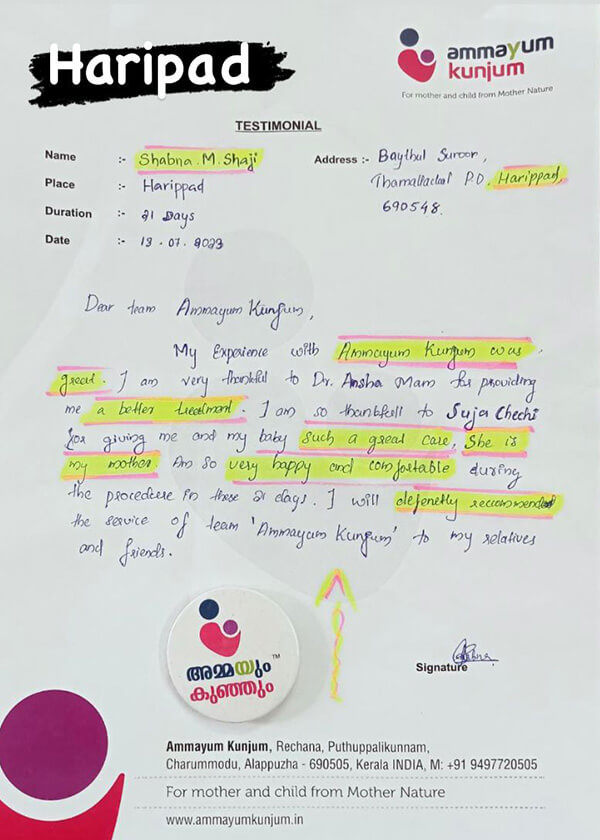 Haripad
ammayum
kunjum
For mother and child from Mother Nature
TESTIMONIAL
Name :- Shabna.M.Shaji
Place :- Harippad
Duration :- 21 Days
Date :- 13.07.2023
Address :- Baythul Suroor,
Thamallackal P.O, Harippad,
690548.
Dear team Ammayum Kunjum,
My Experience with Ammayum Kunjum was
great. I am very thankful to Dr. Ansha Mam for providing
me a better treatment. I am so thankfull to Suja Chechi
for giving me and my baby such a great care, She is
my mother. Am so very happy and comfortable during
the procedure in these 21 days. I will defenetly recommended
the service of team 'Ammayum Kunjum' to my relatives
and friends.
TM
അമ്മയും
കുഞ്ഞും
Signature
Ammayum Kunjum, Rechana, Puthuppalikunnam,
Charummodu, Alappuzha - 690505, Kerala INDIA, M: +91 9497720505
For mother and child from Mother Nature
www.ammayumkunjum.in